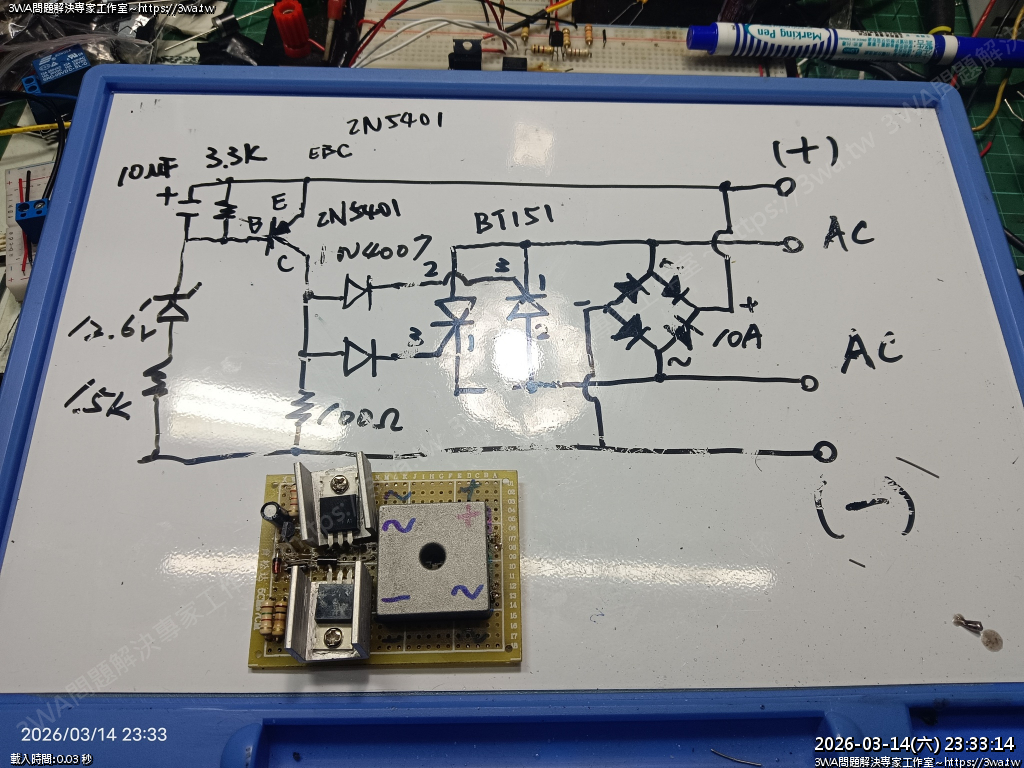 3WA問題解決專家工作室~https://3wa.tw
Marking Pen
2N5401
10uF
3.3K
EBC
(+)
+
E
B
2N5401
C
1N4007
BT151
AC
2
3
1
12.6V
3
1
2
~
-
+
10A
~
AC
1.5K
100Ω
(-)
2026/03/14 23:33
載入時間:0.03 秒
2026-03-14(六) 23:33:14
3WA問題解決專家工作室~https://3wa.tw